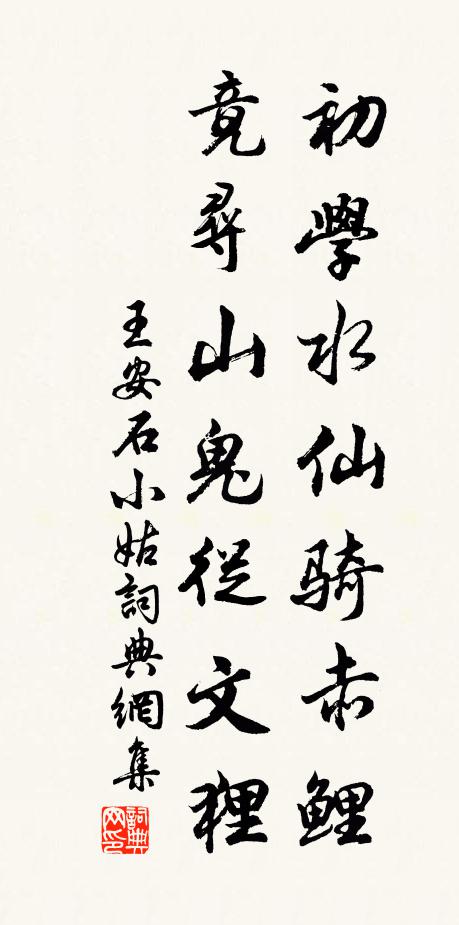 初學水仙骑赤鲤
竟尋山鬼從文狸
王安石小姑詞典網集
詞典网印